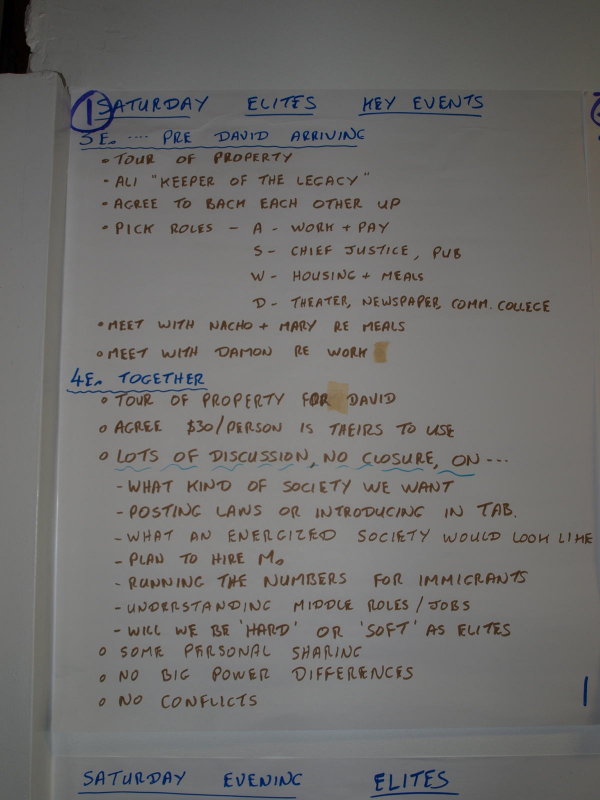 ① SATURDAY ELITES KEY EVENTS
3E. .... PRE DAVID ARRIVING
• TOUR OF PROPERTY
• ALI "KEEPER OF THE LEGACY"
• AGREE TO BACK EACH OTHER UP
• PICK ROLES - A - WORK + PAY
S - CHIEF JUSTICE, PUB
W - HOUSING + MEALS
D - THEATER, NEWSPAPER, COMM. COLLEGE
• MEET WITH NACHO + MARY RE MEALS
• MEET WITH DAMON RE WORK
4E. TOGETHER
• TOUR OF PROPERTY FOR DAVID
• AGREE $30/PERSON IS THEIRS TO USE
• LOTS OF DISCUSSION, NO CLOSURE, ON ...
- WHAT KIND OF SOCIETY WE WANT
- POSTING LAWS OR INTRODUCING IN TAB.
- WHAT AN ENERGIZED SOCIETY WOULD LOOK LIKE
- PLAN TO HIRE M.
- RUNNING THE NUMBERS FOR IMMIGRANTS
- UNDERSTANDING MIDDLE ROLES / JOBS
- WILL WE BE 'HARD' OR 'SOFT' AS ELITES
• SOME PERSONAL SHARING
• NO BIG POWER DIFFERENCES
• NO CONFLICTS
1
SATURDAY EVENING ELITES